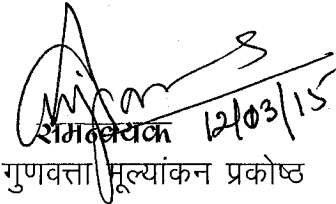 समन्वयक 12/03/15
गुणवत्ता मूल्यांकन प्रकोष्ठ